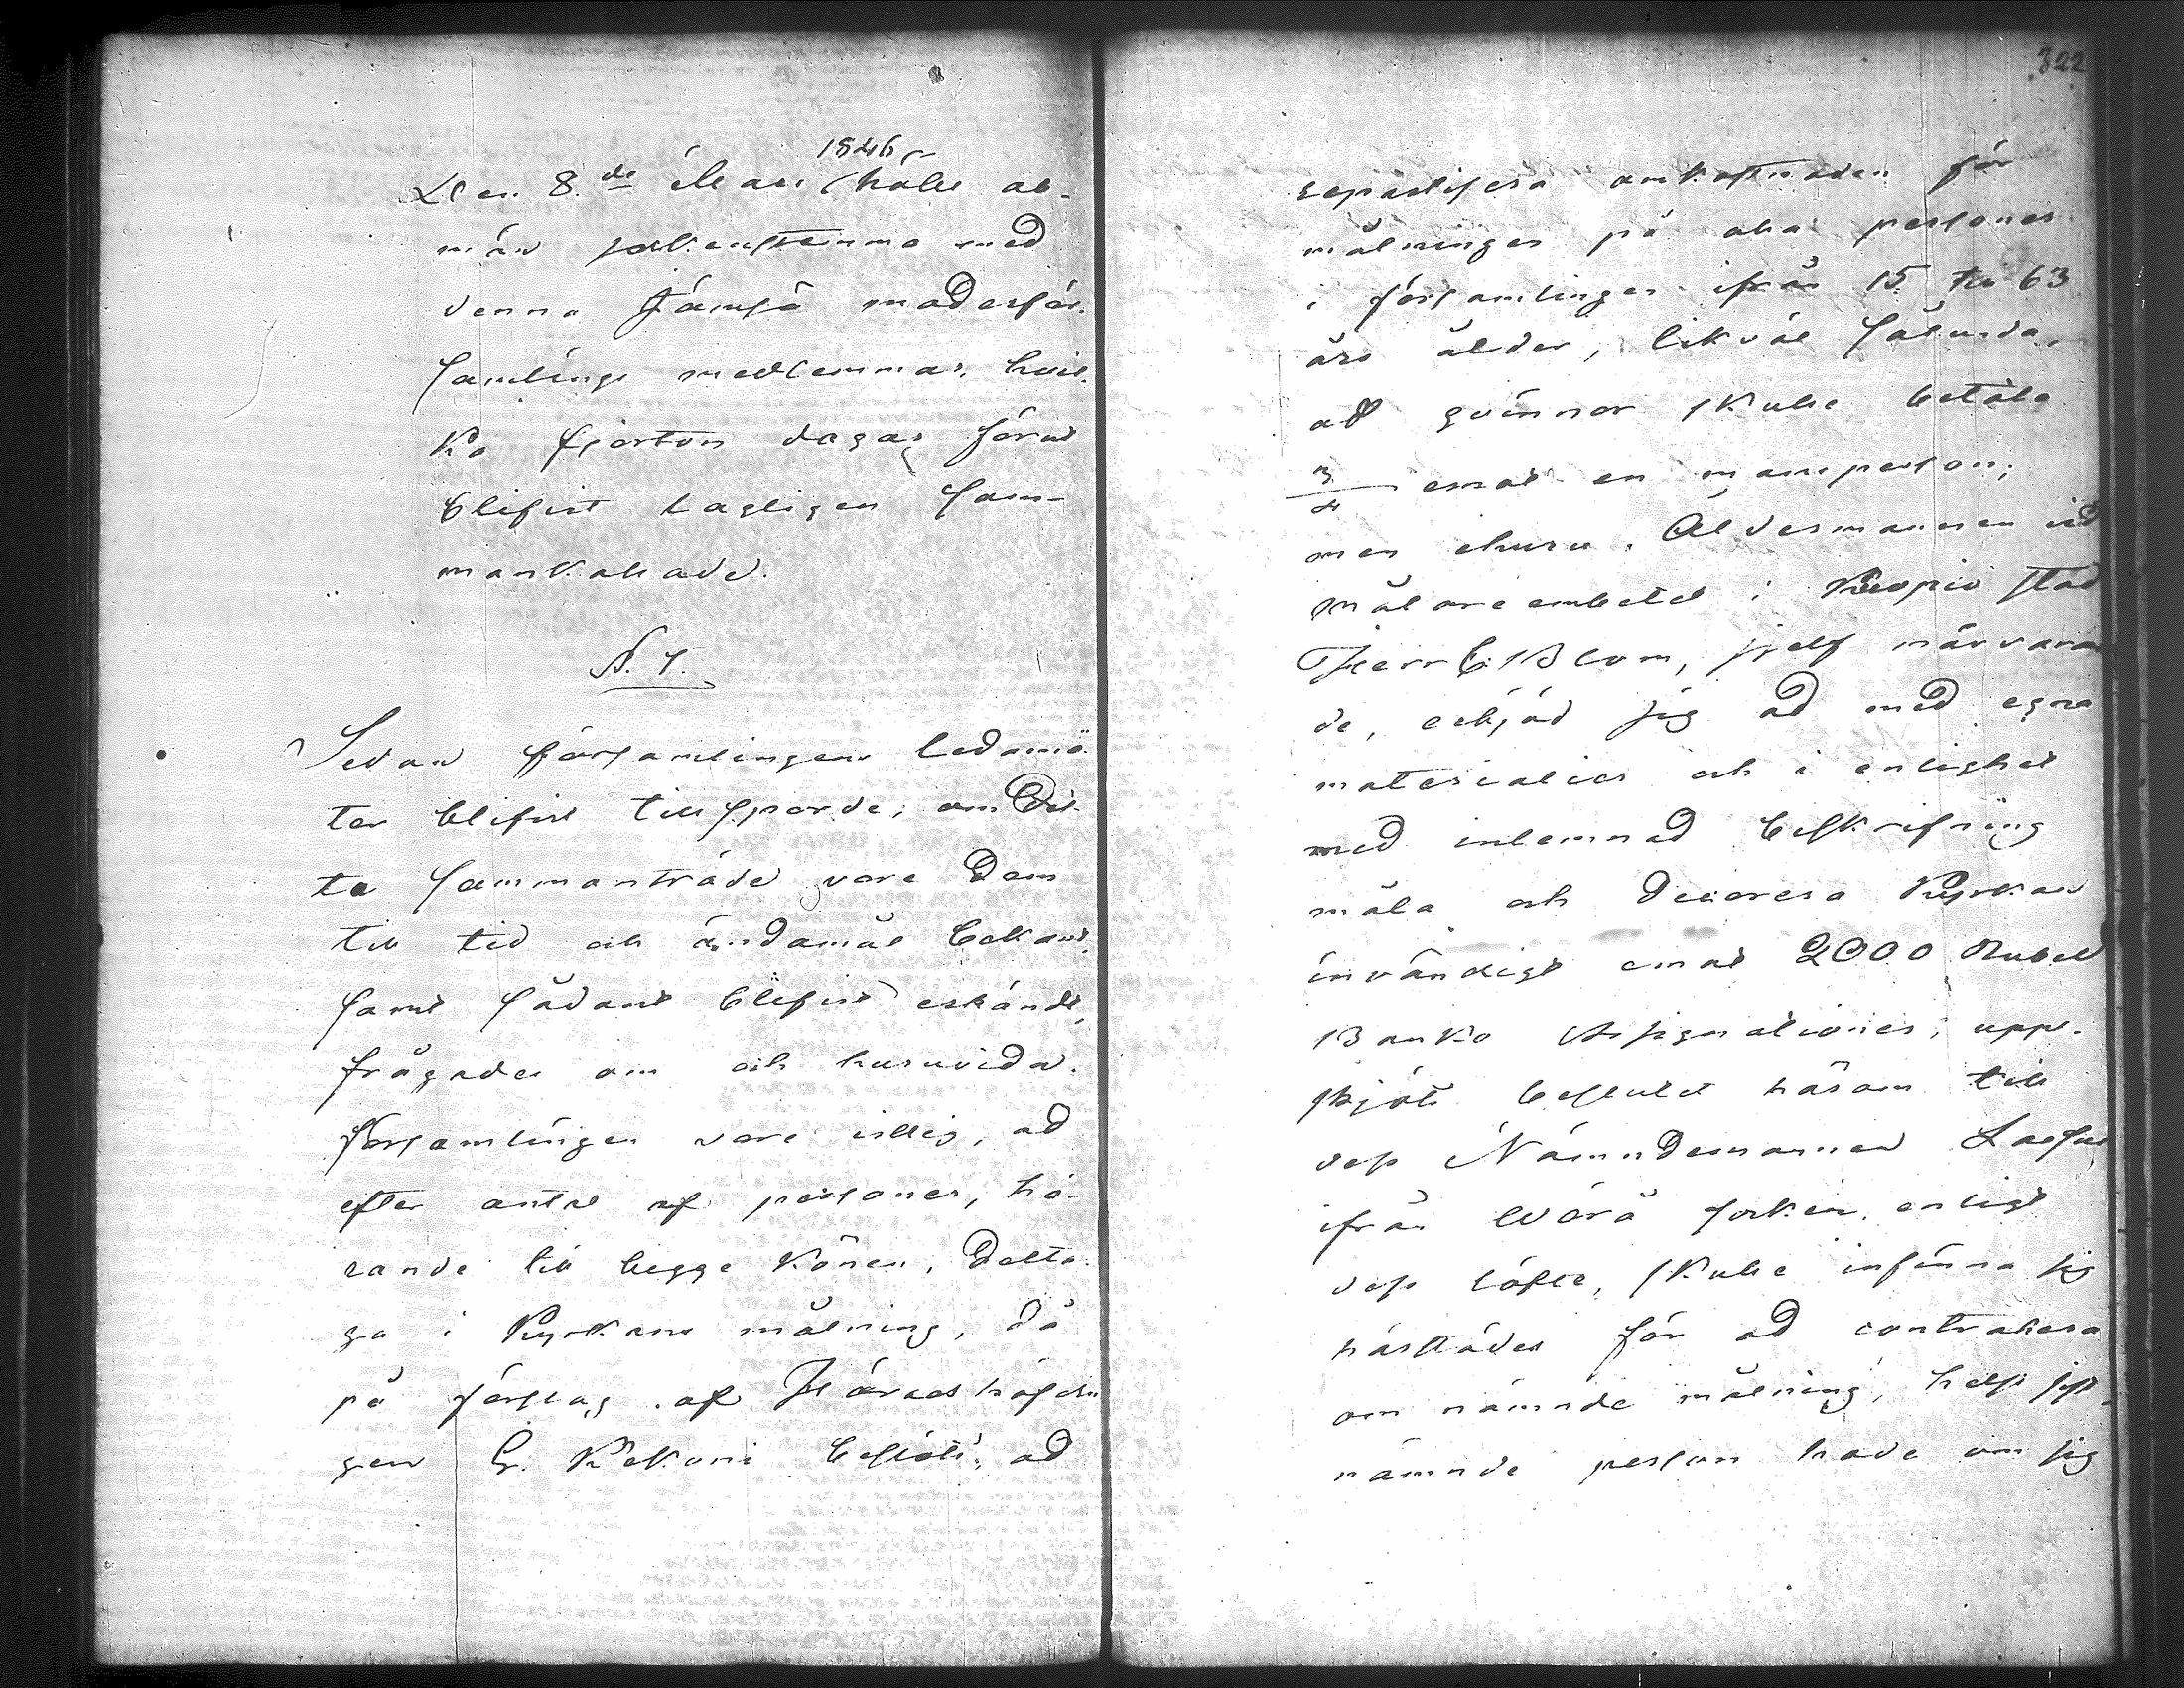 1846
Den 8.de Mars hölls al-
män sockenstämma med
denna Jämsä moderför-
samlings medlemmar, hvil-
ka fjorton dagar förut
blifvit lagligen sam-
mankallade.
§. 1.
Sedan församlingens ledamö-
ter blifvit tillsporde, om det-
ta sammanträde vore dem
till tid och ändamål bekant
samt sådant blifvit erkändt,
frågades om och huruvida
Församlingen vore villig, ad
efter antal af personer, hö-
rande till begge könen, delta-
ga i Kyrkans målning, då
på förslag af Häradshöfdin
gen G. Kekoni beslöts, ad
322
repartisera omkostnaden för
målningen på alla personer
i församlingen ifrån 15 till 63
års ålder, likväl sålunda,
att qvinnor skulle betala
3/4 emot en mansperson;
men ehuru Åldermannen vid
målareembetet i Kuopio stad
Herr Blom, sjelf närvaran
de, erbjöd sig ad med egna
materialier och i enlighet
med inlemnad beskrifning
måla och decorera Kyrkan
invändigt emot 2000 Rubel
Banko Assignationer, upp-
skjöts beslutet härom till
dess Nämndemannen
ifrån Wörå socken, enligt
dess löfte, skulle infinna sig
härstädes för ad contrahera
om nämnde målning, helst sist-
nämnde person hade om sig